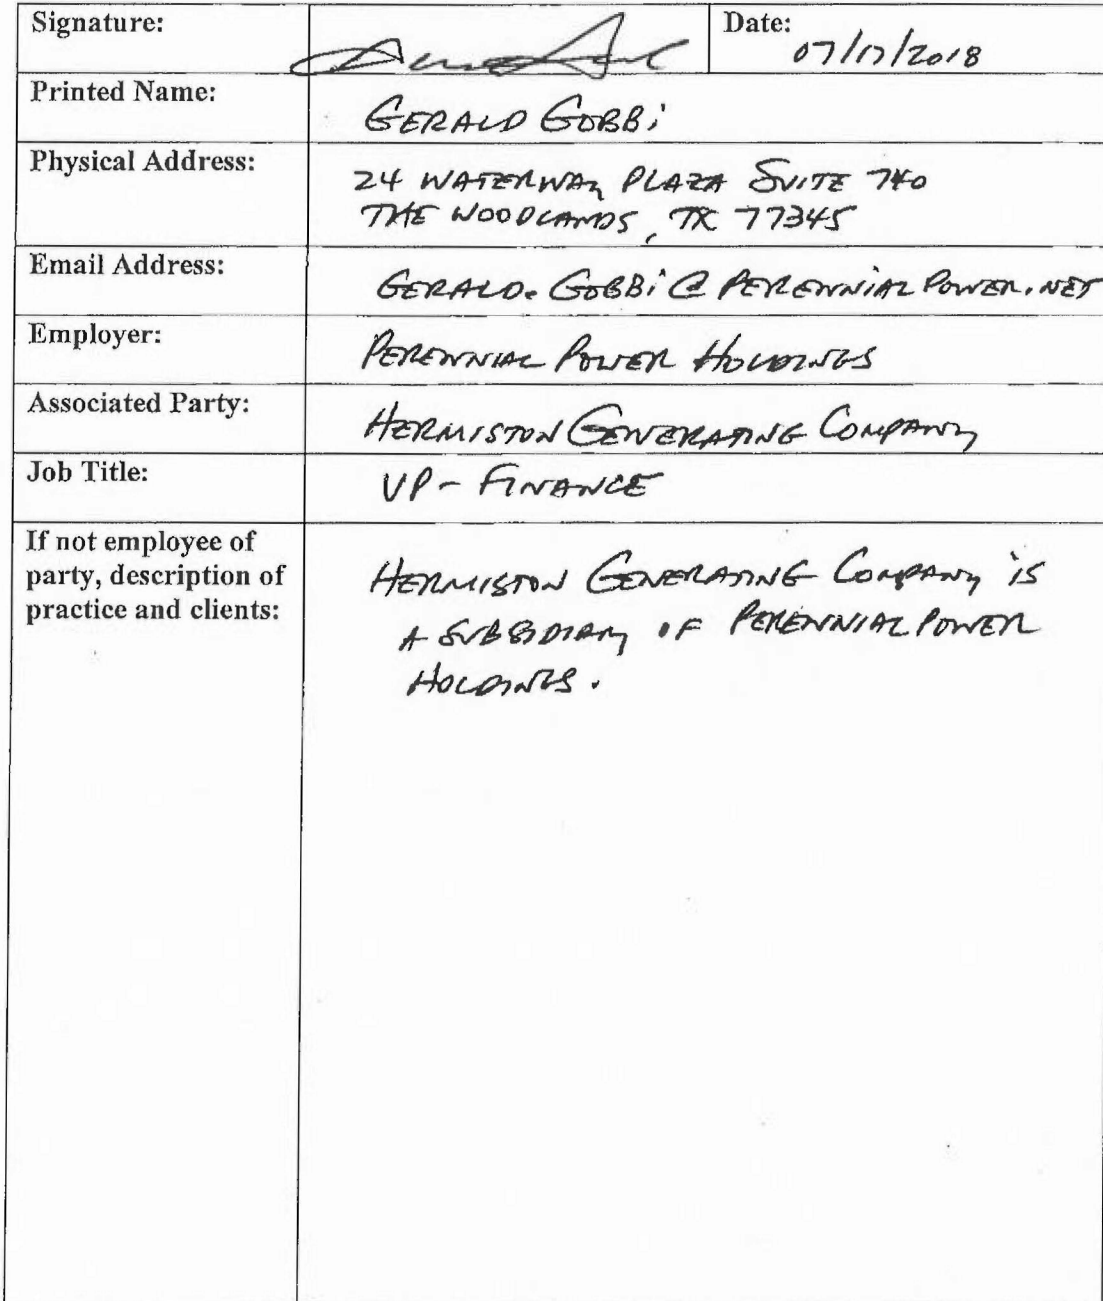 Signature:
Date:
07/17/2018
Printed Name:
GERALD GOBBi
Physical Address:
24 WATERWAY PLAZA SUITE 740
THE WOODLANDS, TX 77345
Email Address:
GERALD.GOBBi@PERENNIALPOWER.NET
Employer:
PERENNIAL POWER HOLDINGS
Associated Party:
HERMISTON GENERATING COMPANY
Job Title:
VP - FINANCE
If not employee of
party, description of
practice and clients:
HERMISTON GENERATING COMPANY iS
A SUBSIDIARY OF PERENNIAL POWER
HOLDINGS.